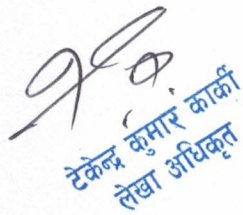 टेकेन्द्र कुमार कार्की
लेखा अधिकृत